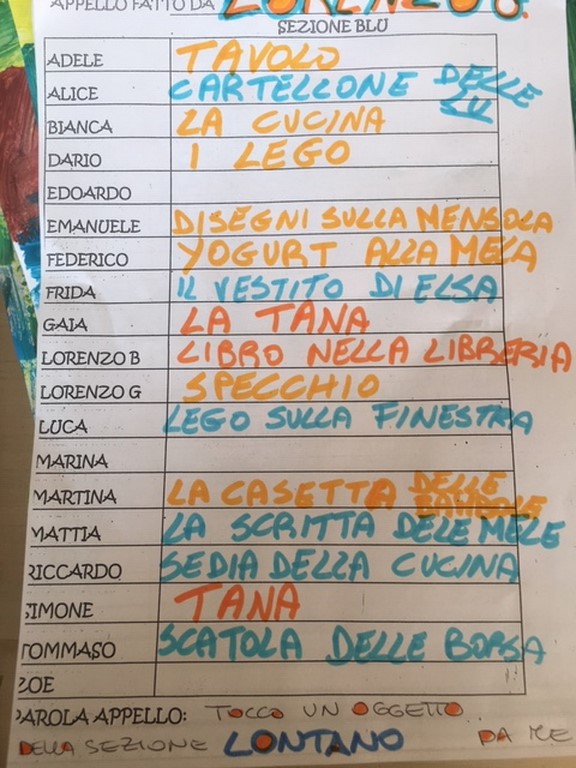 APPELLO FATTO DA LORENZO B.
SEZIONE BLU
ADELE TAVOLO
ALICE CARTELLONE DELLE LU
BIANCA LA CUCINA
DARIO I LEGO
EDOARDO
EMANUELE DISEGNI SULLA MENSOLA
FEDERICO YOGURT ALLA MELA
FRIDA IL VESTITO DI ELSA
GAIA LA TANA
LORENZO B LIBRO NELLA LIBRERIA
LORENZO G SPECCHIO
LUCA LEGO SULLA FINESTRA
MARINA
MARTINA LA CASETTA DELLE BAMBOLE
MATTIA LA SCRITTA DELE MELE
RICCARDO SEDIA DELLA CUCINA
SIMONE TANA
TOMMASO SCATOLA DELLE BORSA
ZOE
PAROLA APPELLO: TOCCO UN OGGETTO..
DELLA SEZIONE LONTANO DA ME